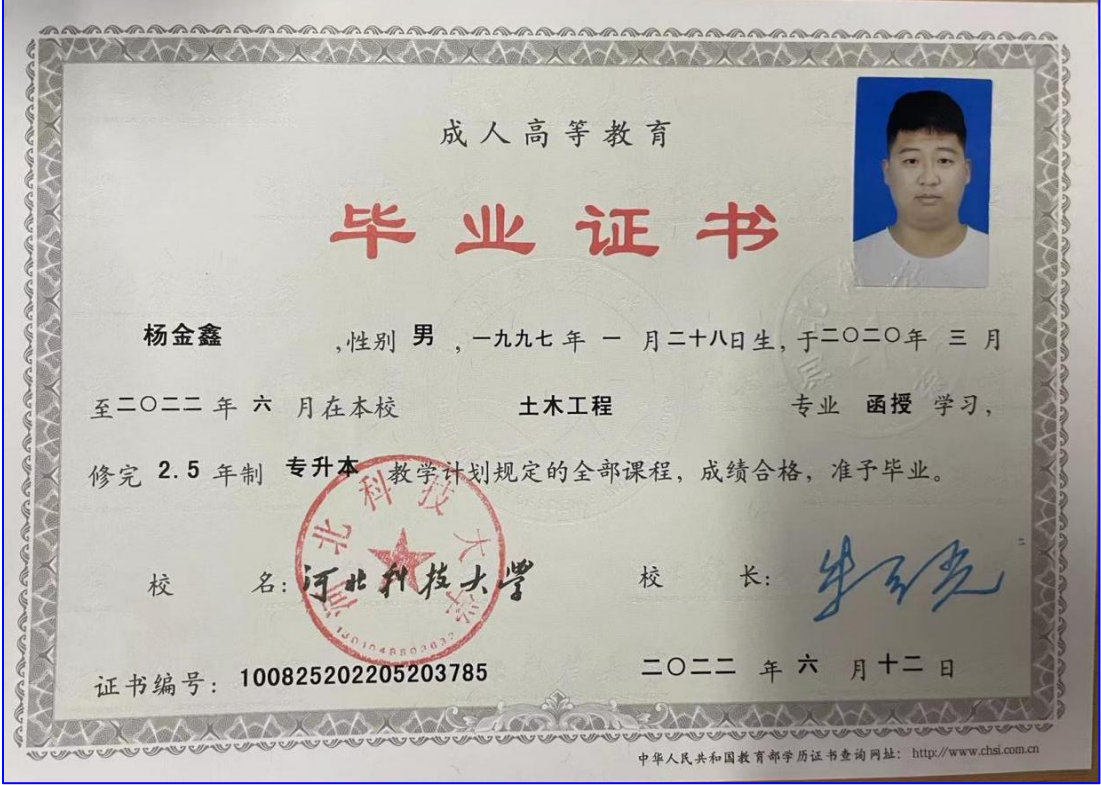 成人高等教育
毕业证书
杨金鑫 ,性别 男 ,一九九七 年 一 月二十八日生, 于二〇二〇年 三 月
至二〇二二 年 六 月在本校 土木工程 专业 函授 学习,
修完 2.5 年制 专升本 教学计划规定的全部课程, 成绩合格, 准予毕业。
河北科技大学
校 名: 河北科技大学 校 长:
证书编号: 100825202205203785 二〇二二 年 六 月 十二 日
中华人民共和国教育部学历证书查询网址: http://www.chsi.com.cn